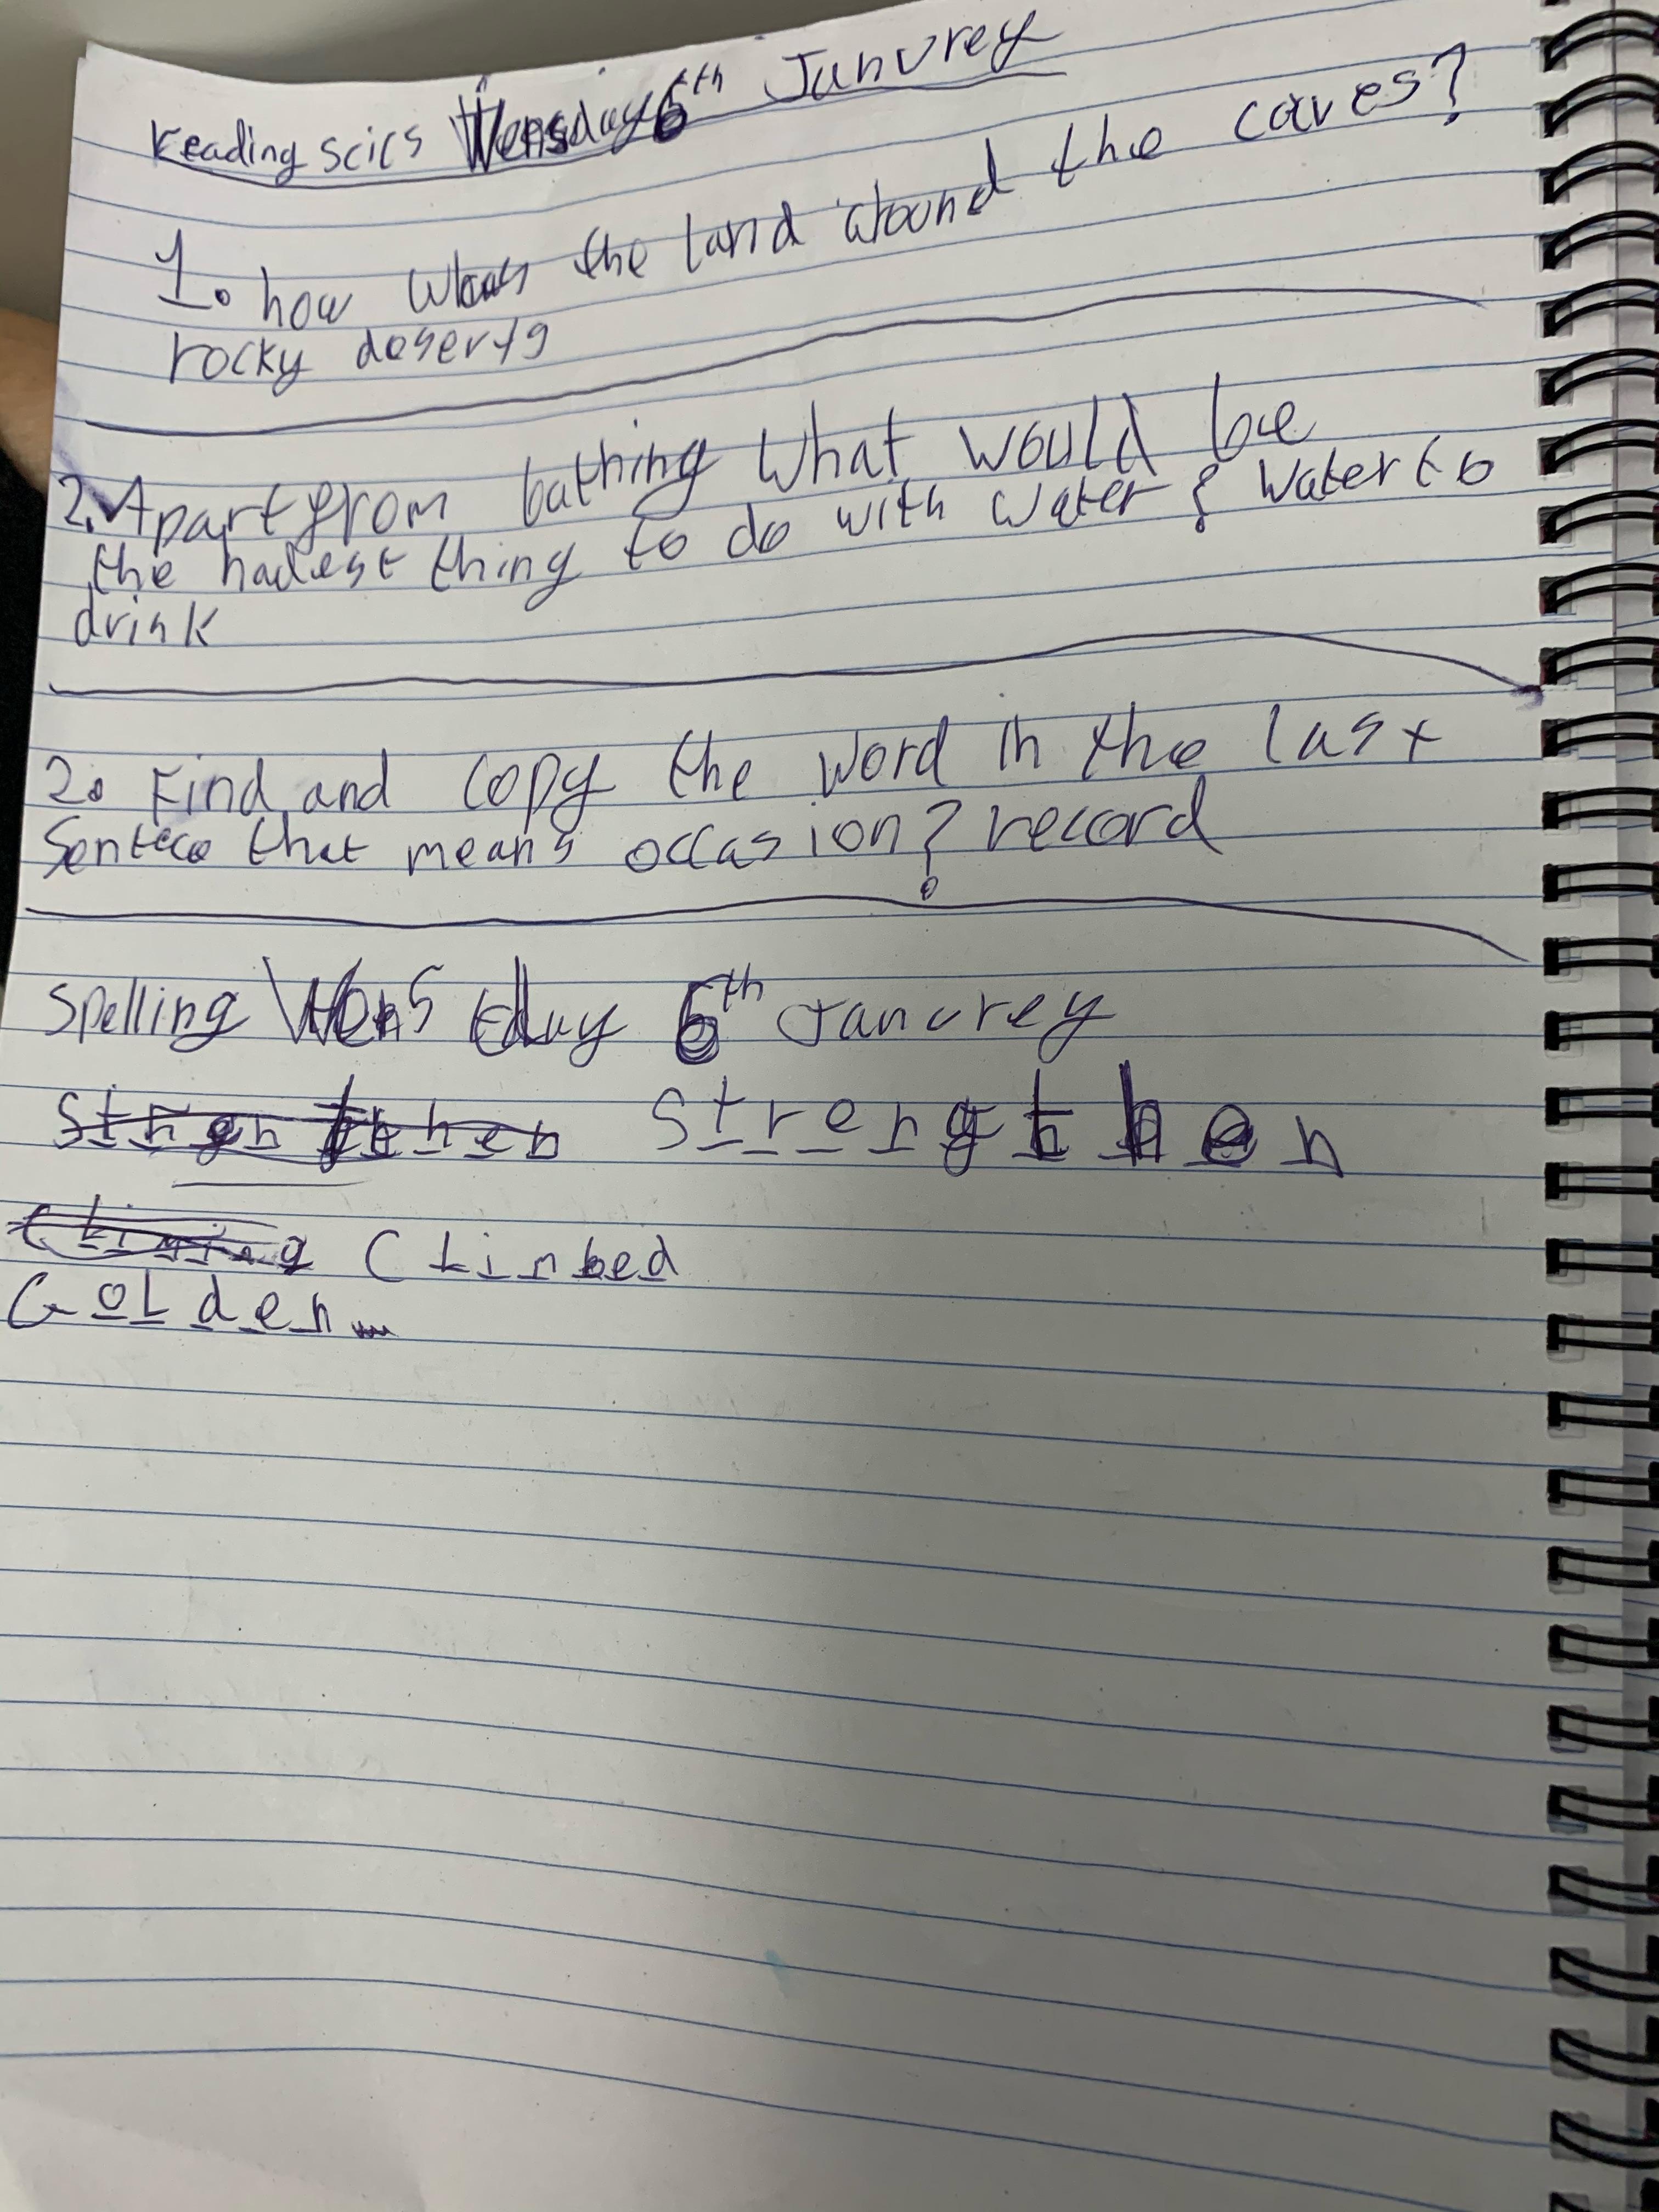 reading scics Wensday 6th Janurey
1. how was the land around the caves?
rocky deserts
2. Apart from bathing What would be
the hadest thing to do with water? Water to
drink
2. Find and copy the word in the last
Sentece that means occasion? record
Spelling Wensday 6th Janurey
Strengthen
Climbed
Golden